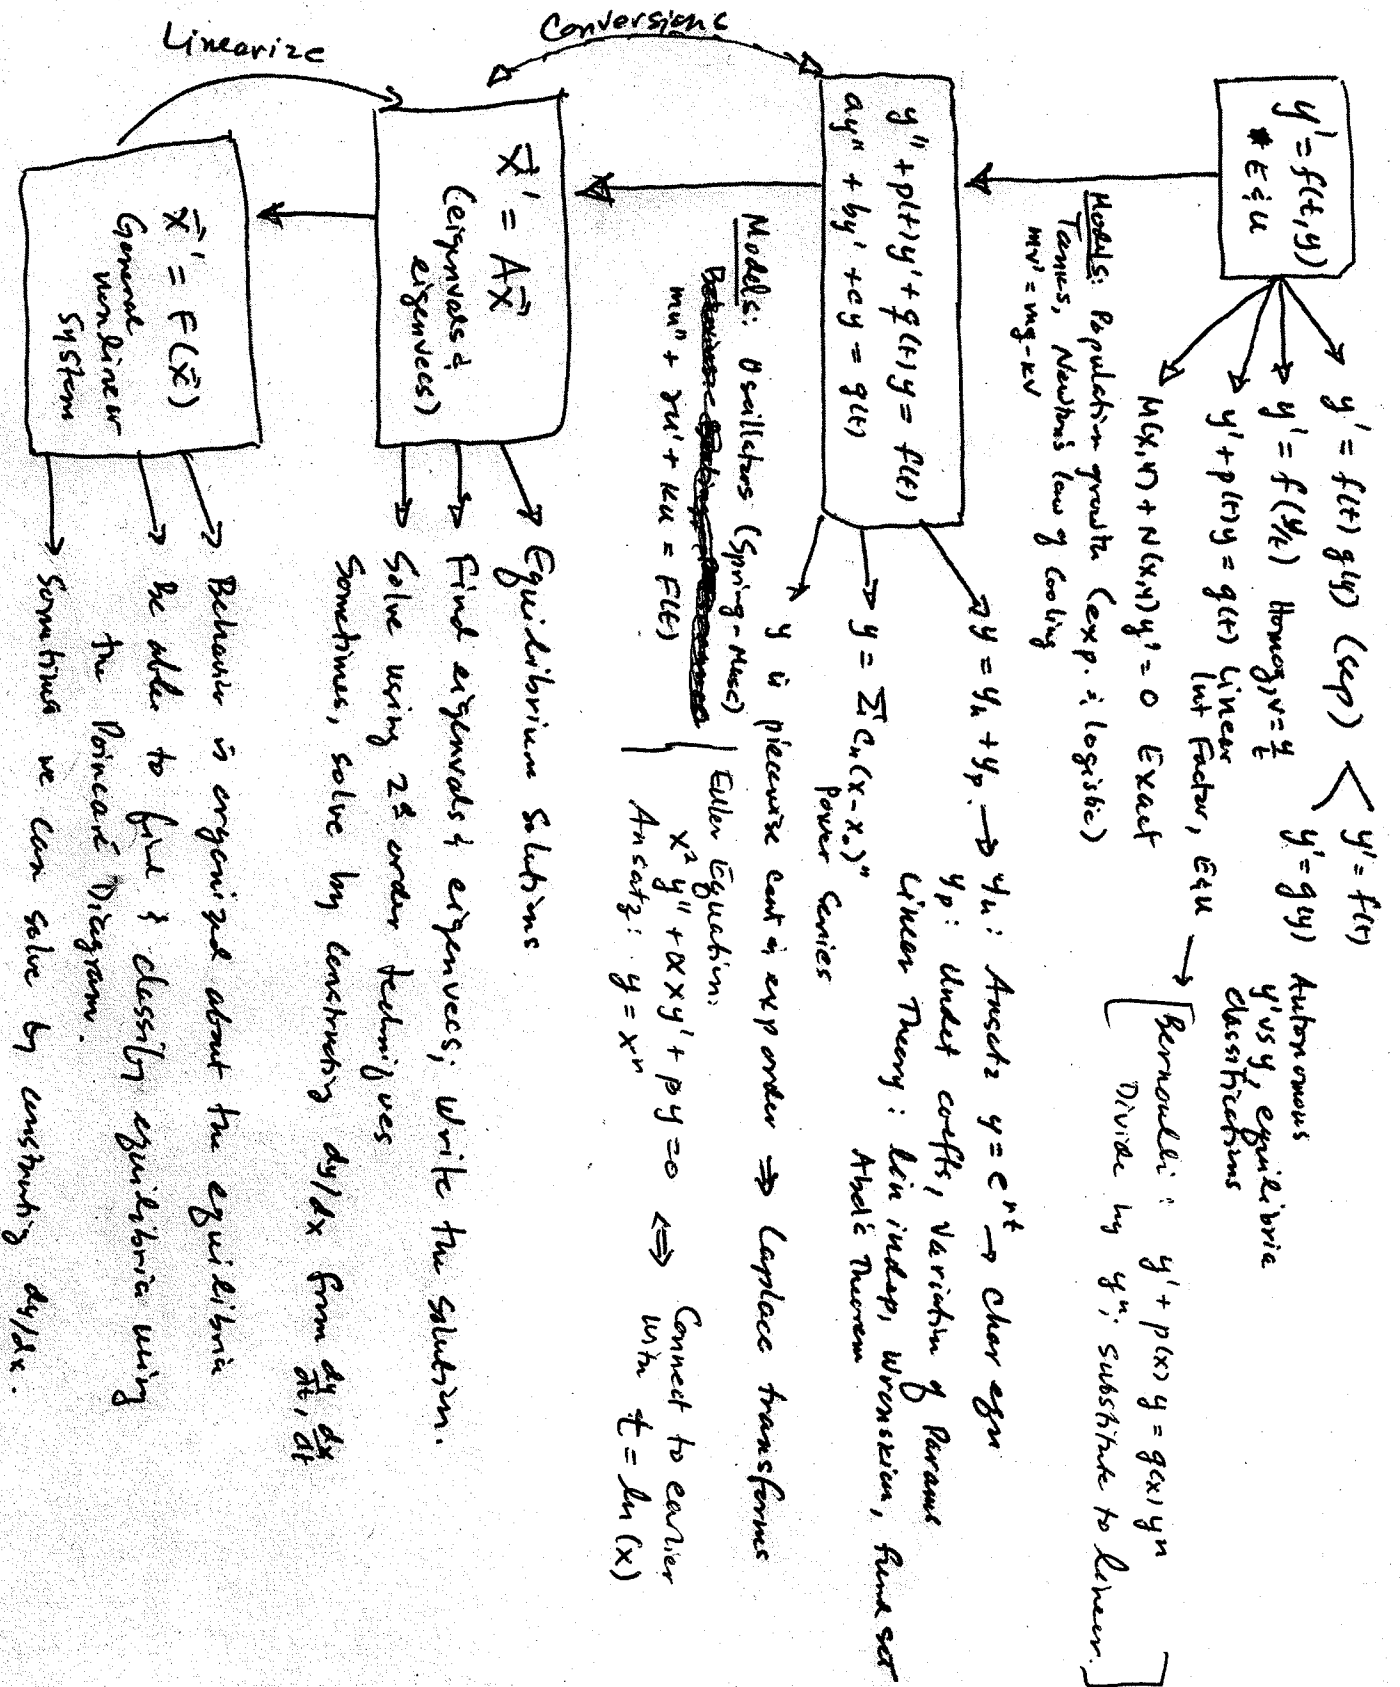 y' = f(t,y)
* E & U
y' = f(t) g(y) (sep) < y' = f(t)
y' = g(y) Autonomous
y' vs y, equilibria
classifications
y' = f(y/t) Homog, v = y/t
y' + p(t)y = g(t) Linear
Int Factor, E & U → [Bernoulli: y' + p(x)y = g(x)y^n
Divide by y^n; substitute to linear.]
M(x,y) + N(x,y)y' = 0 Exact
Models: Population growth (exp. & logistic)
Tanks, Newtons law of cooling
mv' = mg - kv
y'' + p(t)y' + q(t)y = f(t)
ay'' + by' + cy = g(t)
y = y_h + y_p → y_h: Ansatz y = e^{rt} → Char eqn
y_p: Undet coeffs, Variation of Params
Linear Theory: Lin indep, Wronskian, fund set
Abel's Theorem
y = Σ c_n (x - x_0)^n
Power Series
y is piecewise cont & exp order ⇒ Laplace transforms
Models: Oscillators (Spring-Mass)
mu'' + γu' + ku = F(t)
Euler Equation:
x² y'' + αxy' + βy = 0 ⇔ Connect to earlier
Ansatz: y = x^r with t = ln(x)
Conversions
x⃗' = Ax⃗
(eigenvals &
eigenvecs)
Equilibrium Solutions
Find eigenvals & eigenvecs; Write the solution.
Solve using 2nd order techniques
Sometimes, solve by constructing dy/dx from dy/dt, dx/dt
Linearize
x⃗' = F(x⃗)
General
nonlinear
system
Behavior is organized about the equilibria
Be able to find & classify equilibria using
the Poincaré Diagram.
Sometimes we can solve by constructing dy/dx.